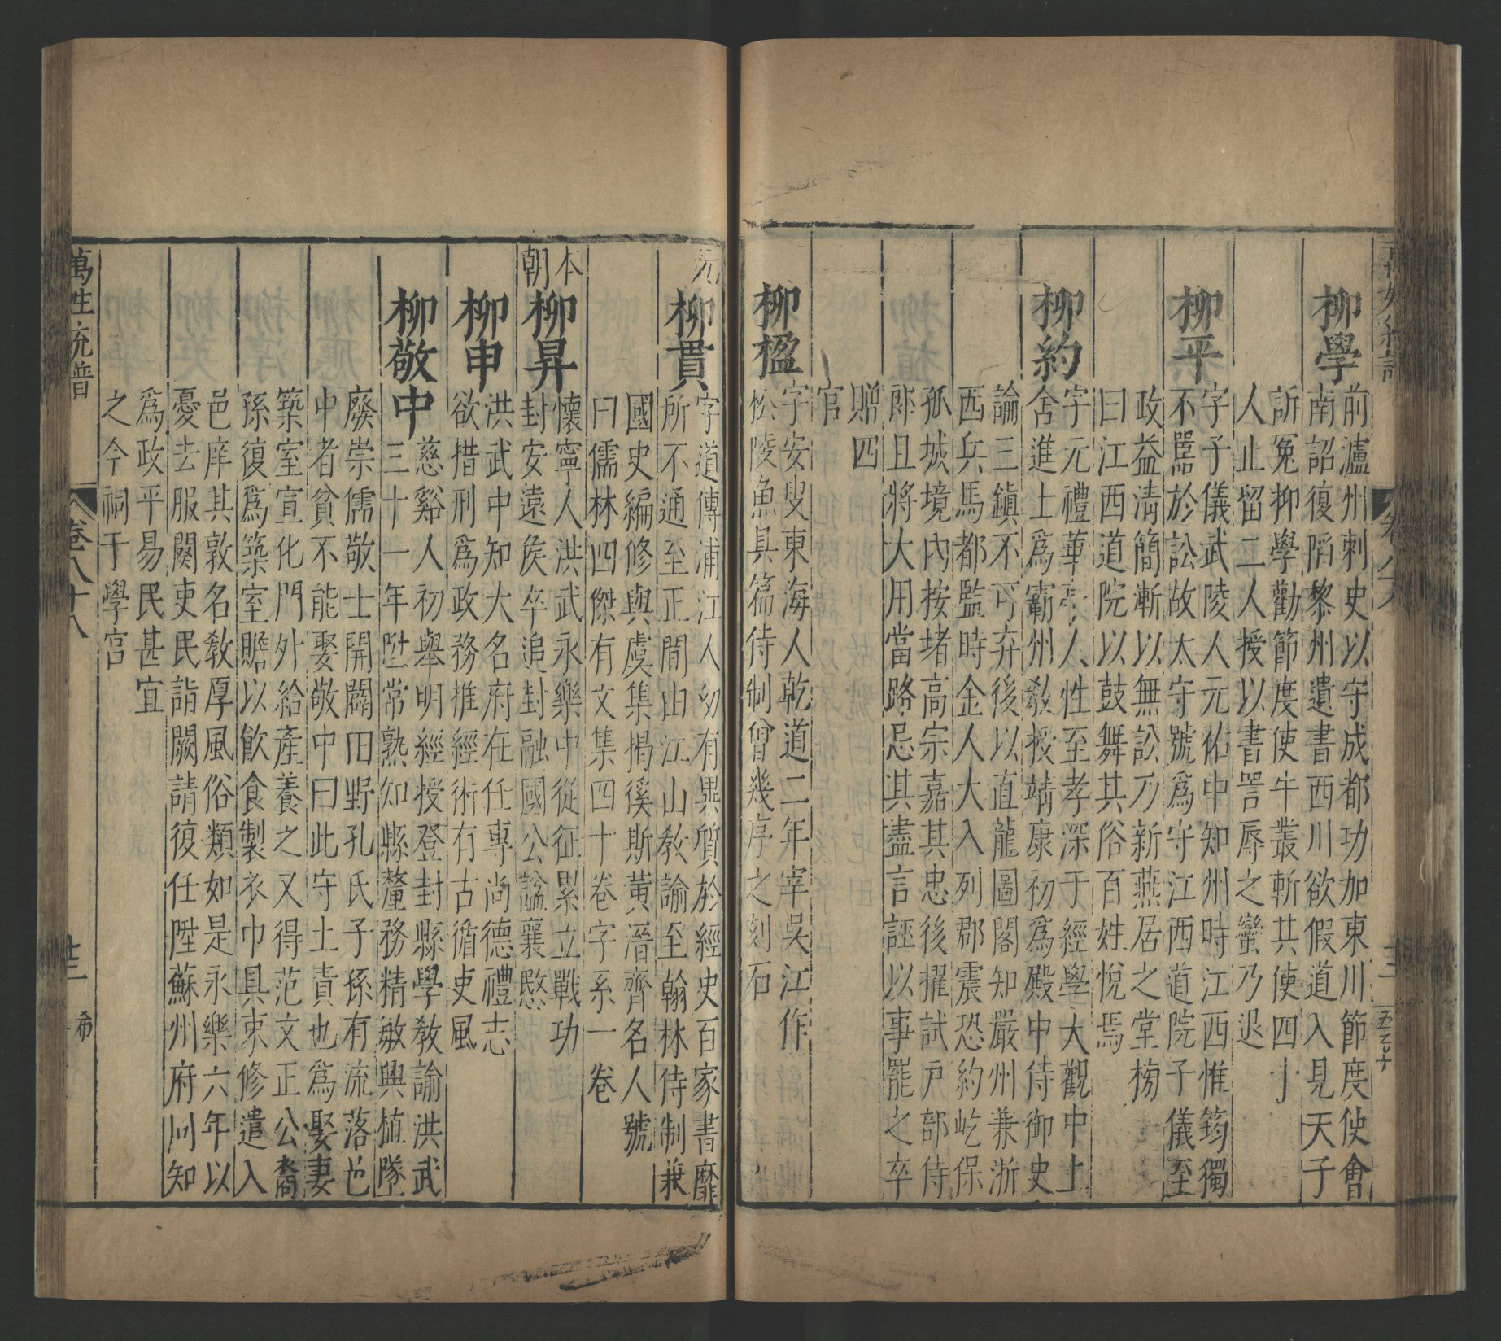 柳學
前瀘州刺史以守成都功加東川節度使會
南詔復陷黎州遺書西川欲假道入見天子
訴冤柳學勸節度使牛叢斬其使四十
人止留二人授以書詈辱之蠻乃退
柳平
字子儀武陵人元祐中知州時江西惟筠獨
不嚚於訟故太守號爲守江西道院子儀至
政益淸簡漸以無訟乃新燕居之堂榜
曰江西道院以鼓舞其俗百姓悅焉
柳約
字元禮華亭人性至孝深于經學大觀中上
舍進士爲霸州敎授靖康初爲殿中侍御史
論三鎮不可弃後以直龍圖閣知嚴州兼浙
西兵馬都監時金人大入列郡震恐約屹保
孤城境內按堵高宗嘉其忠後擢試戸部侍
郎且將大用當路忌其盡言誣以事罷之卒
贈四
官
柳楹
字安叟東海人乾道二年宰吳江作
松陵魚具篇侍制曾幾序之刻石
元
柳貫
字道傳浦江人幼有異質於經史百家書靡
所不通至正間由江山敎諭至翰林待制兼
國史編修與虞集揭徯斯黃溍齊名人號
曰儒林四傑有文集四十卷字系一卷
本朝
柳昇
懷寧人洪武永樂中從征累立戰功
封安遠侯卒追封融國公謚襄愍
柳申
洪武中知大名府在任專尚德禮志
欲措刑爲政務推經術有古循吏風
柳敬中
慈谿人初舉明經授登封縣學敎諭洪武
三十一年陞常熟知縣釐務精敏興植墜
廢崇儒敬士開闢田野孔氏子孫有流落邑
中者貧不能娶敬中曰此守土責也爲娶妻
築室宣化門外給產養之又得范文正公裔
孫復爲築室贍以飮食製衣巾具束修遣入
邑庠其敦名敎厚風俗類如是永樂六年以
憂去服闋吏民詣闕請復任陞蘇州府同知
爲政平易民甚宜
之今祠于學宮
萬姓統譜
卷八十八